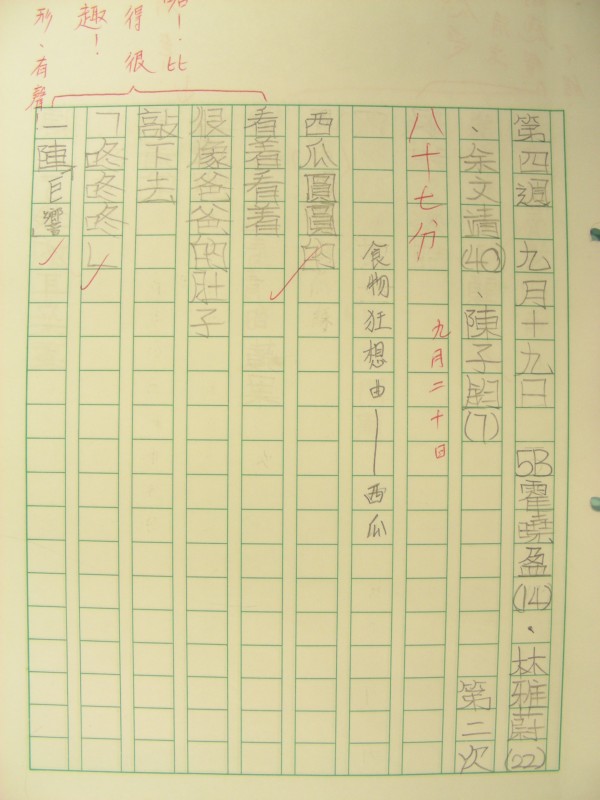 第四週 九月十九日 5B霍曉盈(14)、林雅蔚(22)
、余文靖(40)、陳子朗(7) 第二次
八十七分 九月二十日
食物狂想曲——西瓜
西瓜圓圓的
看着看着
很像爸爸的肚子
敲下去
「咚咚咚」
一陣巨響
比
得很
趣！
形、有聲